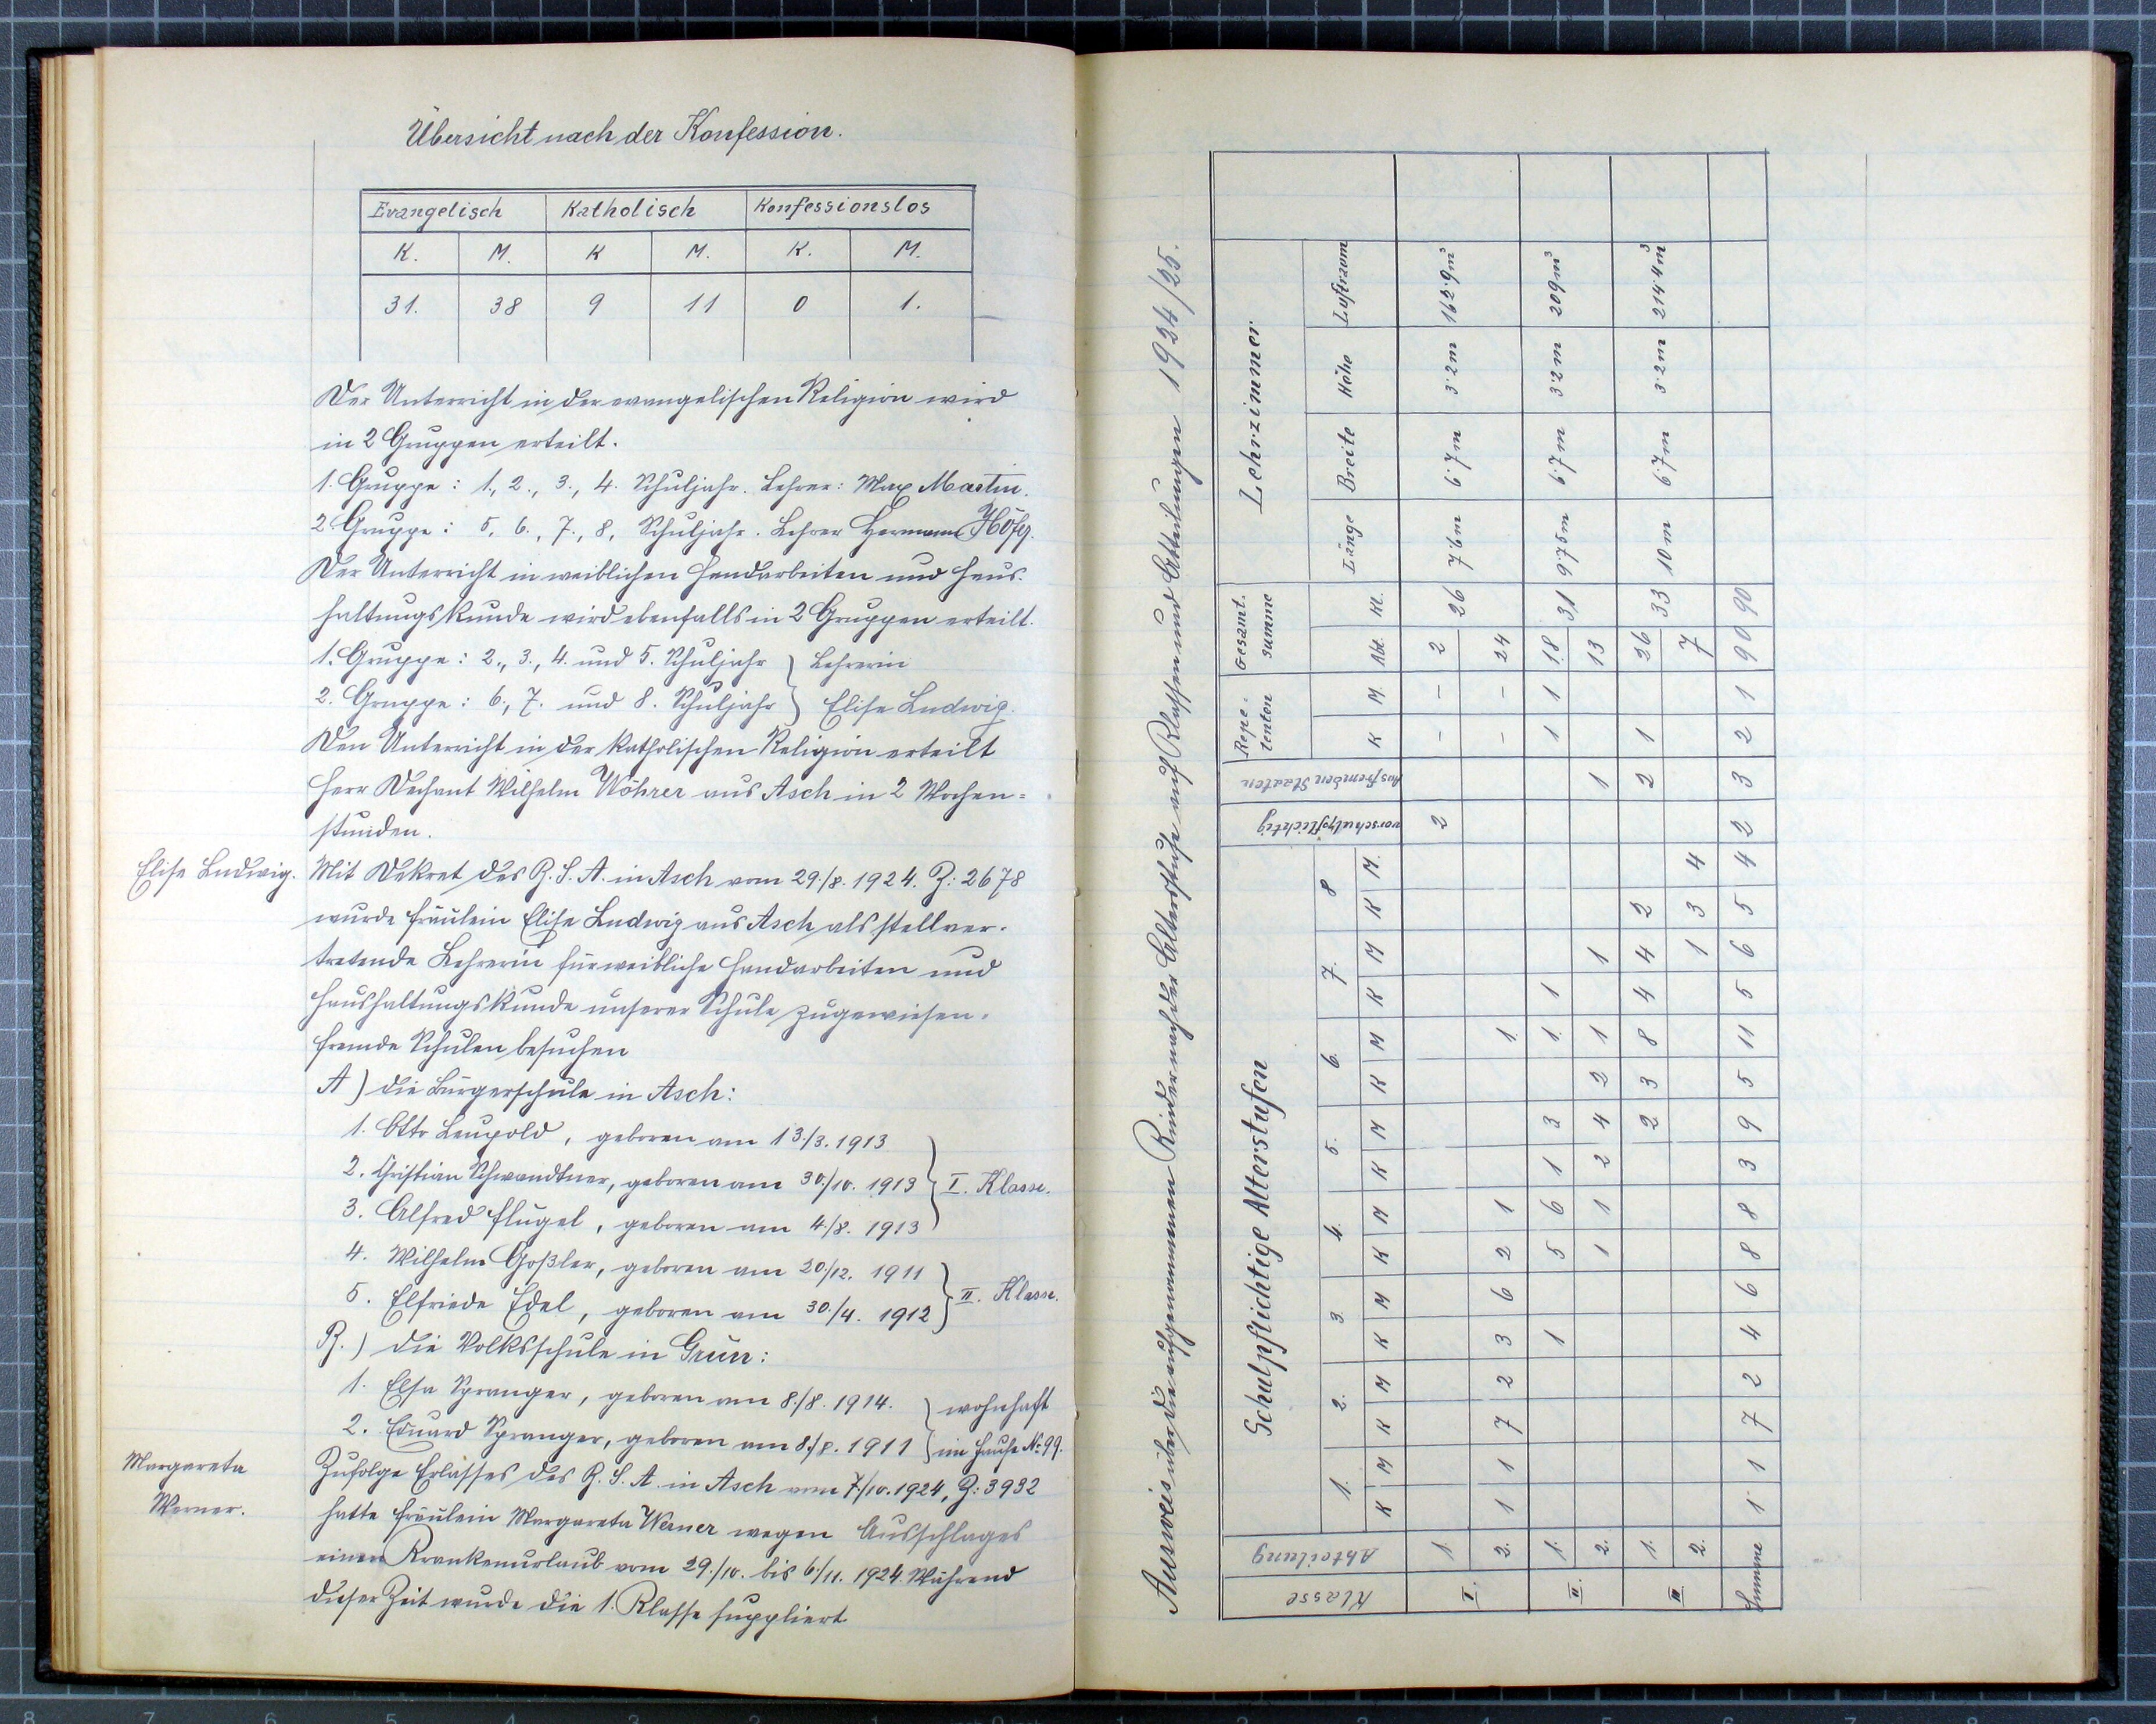 Übersicht nach der Konfession.
Evangelisch Katholisch Konfessionslos
K. M. K M. K. M.
31. 38 9 11 0 1.
Der Unterricht in der evangelischen Religion wird
in 2 Gruppen erteilt.
1. Gruppe: 1., 2., 3., 4. Schuljahr. Lehrer: Max Martin.
2. Gruppe: 5. 6., 7., 8. Schuljahr. Lehrer Hermann
Der Unterricht in weiblichen Handarbeiten und Haus-
haltungskunde wird ebenfalls in 2 Gruppen erteilt.
1. Gruppe: 2., 3., 4. und 5. Schuljahr } Lehrerin
2. Gruppe: 6., 7. und 8. Schuljahr } Elise Ludwig.
Den Unterricht in der katholischen Religion erteilt
Herr Dechant Wilhelm Wöhrer aus Asch in 2 Wochen=
stunden.
Elise Ludwig.
Mit Dekret des B.S.A. in Asch vom 29./8. 1924. Z: 2678
wurde Fräulein Elise Ludwig aus Asch als stellver-
tretende Lehrerin für weibliche Handarbeiten und
Haushaltungskunde unserer Schule zugewiesen.
Fremde Schulen besuchen
A) die Bürgerschule in Asch:
1. Otto Leupold, geboren am 13./3. 1913
2. Christian Schwandtner, geboren am 30./10. 1913 } I. Klasse.
3. Alfred Flügel, geboren am 4./8. 1913
4. Wilhelm Goßler, geboren am 20./12. 1911
5. Elfriede Edel, geboren am 30./4. 1912 } II. Klasse.
B.) die Volksschule in Grün:
1. Elsa Spranger, geboren am 8./8. 1914. } wohnhaft
2. Eduard Spranger, geboren am 8./8. 1911 } im Hause No 99.
Margareta
Werner.
Zufolge Erlasses des B.S.A. in Asch vom 7./10. 1924, Z: 3932
hatte Fräulein Margareta Werner wegen Ausschlages
einen Krankenurlaub vom 29./10. bis 6./11. 1924. Während
dieser Zeit wurde die 1. Klasse suppliert
Ausweis über die aufgenommenen Kinder nach der Altersstufe auf Klassen und Abteilungen 1924/25.
Klasse Abteilung Schulpflichtige Altersstufen vorschulpflichtig Aus fremden Staaten Repe-tenten Gesamt-summe Lehrzimmer
1. 2. 3. 4. 5. 6. 7. 8
K M K M K M K M K M K M K M K M. K M. Abt. Kl. Länge Breite Höhe Luftraum
I. 1. 2 - - 2 26 7·6m 6·7m 3·2m 162·9m³
2. 1 1 7 2 3 6 2 1 1. - - 24
II. 1. 1 5 6 1 3 1. 1 1 1 18 31 9·75m 6·7m 3·2m 209m³
2. 1 1 2 4 2 1 1 1 13
III 1. 2 3 8 4 4 2 2 1 26 33 10m 6·7m 3·2m 214·4m³
2. 1 3 4 7
Summe 1 1 7 2 4 6 8 8 3 9 5 11 5 6 5 4 2 3 2 1 90 90